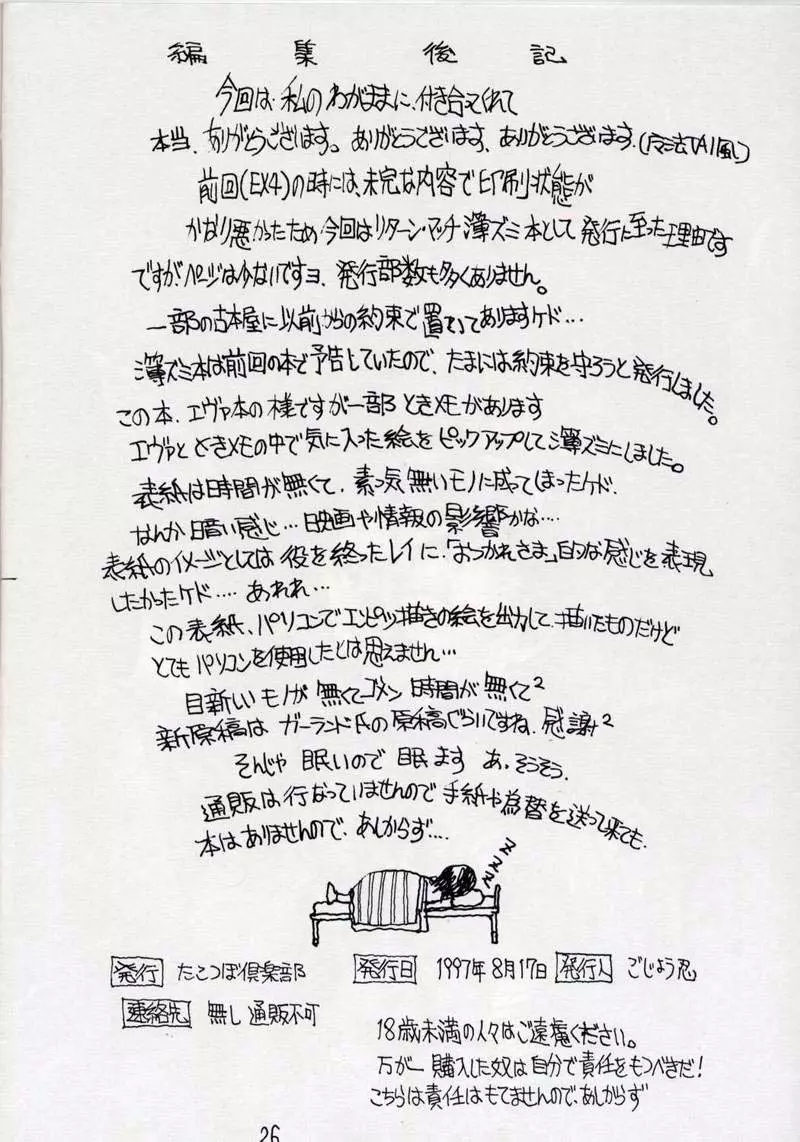 編集後記
今回は私のわがままに付き合ってくれて
本当、ありがとうございます。ありがとうございます、ありがとうございます。
前回(EX4)の時には、未完な内容で印刷状態が
かなり悪かったため今回はリターン・マッチ 薄ズミ本として発行に至った理由です
ですが、ページは少ないですヨ、発行部数も多くありません。
一部の古本屋に以前からの約束で置いてありますケド…
薄ズミ本は前回の本で予告していたので、たまには約束を守ろうと発行しました。
この本、エヴァ本の様ですが一部ときメモがあります
エヴァとときメモの中で気に入った絵をピックアップして薄ズミにしました。
表紙は時間が無くて、素っ気無いモノに成ってしまったケド、
なんか暗い感じ…映画や情報の影響かな….
表紙のイメージとしては役を終ったレイに、「おつかれさま」的な感じを表現
したかったケド…. あれれ…
この表紙、パソコンでエンピツ描きの絵を出力して、描いたものだけど
とてもパソコンを使用したとは思えません…
目新しいモノが無くてゴメン 時間が無くて²
新原稿はガーランド氏の原稿ぐらいですね、感謝²
そんじゃ 眠いので 眠ます あ、そうそう、
通販は行なっていませんので手紙や為替を送って来ても、
本はありませんので、あしからず….
ZZZZ
発行 たこつぼ倶楽部 発行日 1997年8月17日 発行人 ごじょう忍
連絡先 無し 通販不可
18歳未満の人々はご遠慮ください。
万が一購入した奴は自分で責任をもつべきだ!
こちらは責任はもてませんので、あしからず
26